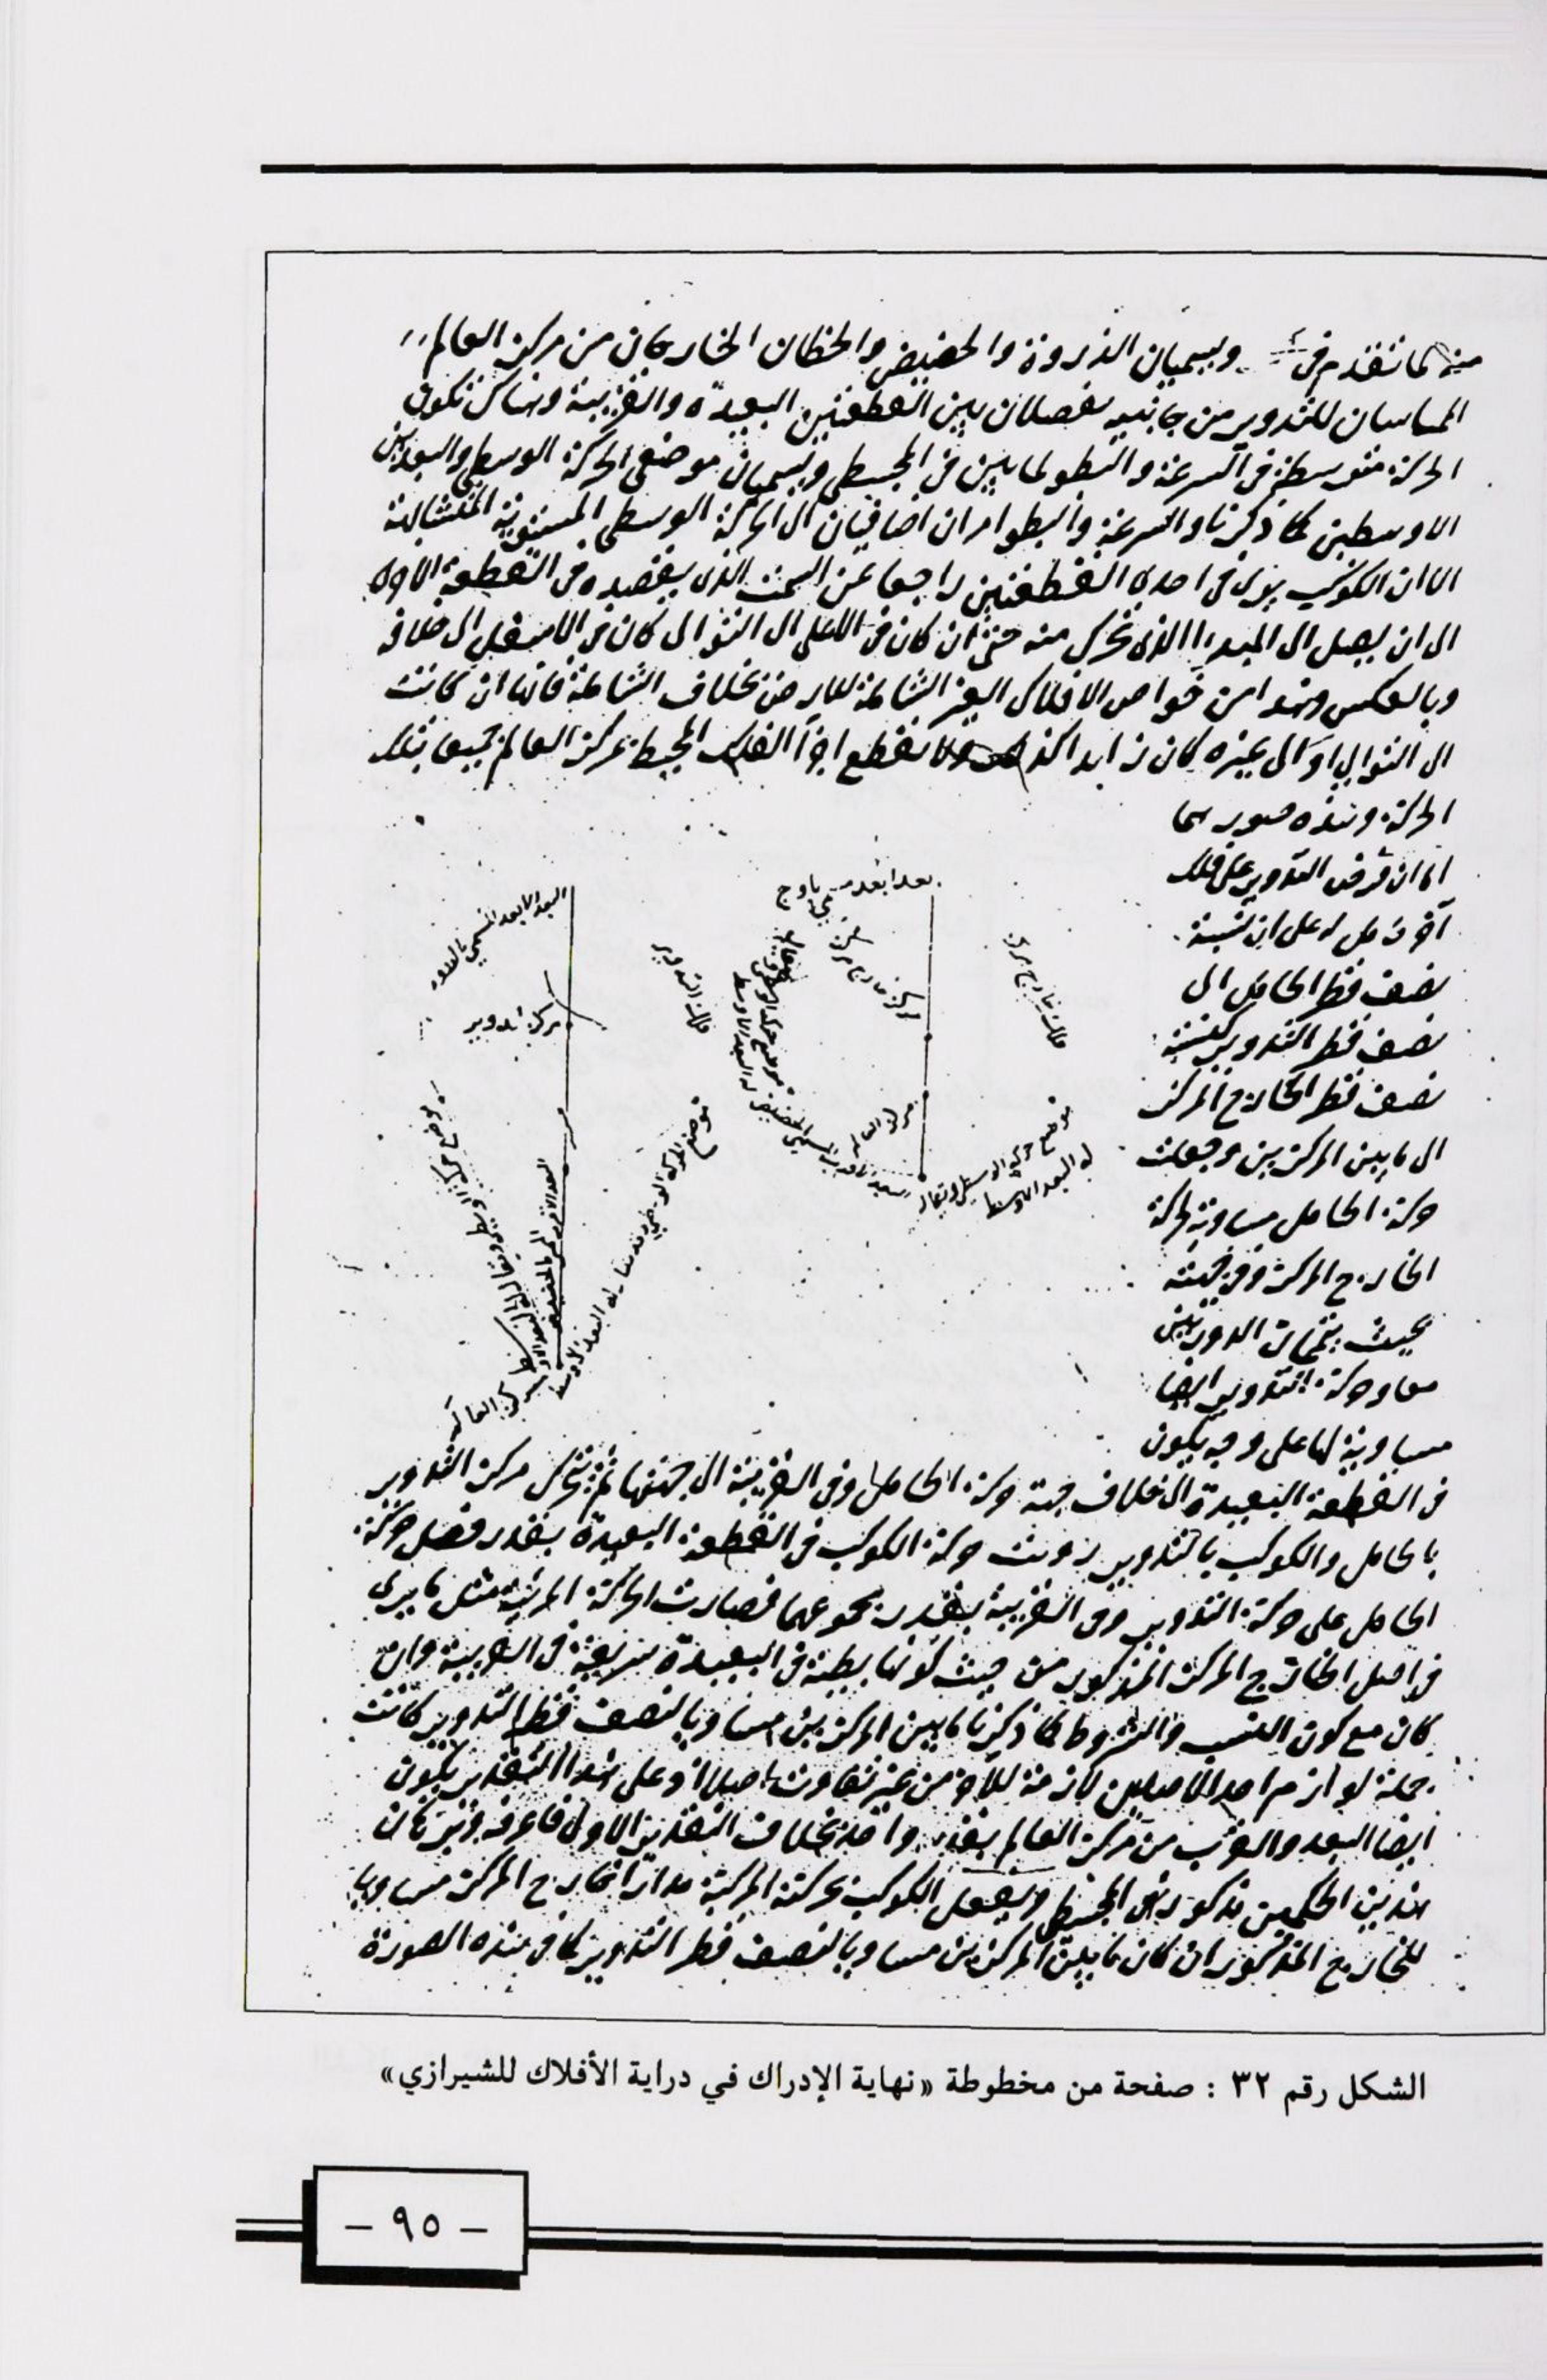 ويسميان الذروة والحضيض والخطان الخارجان من مركز العالم
المماسان للتدوير من جانبيه يفصلان بين القطعتين البعيدة والقريبة وهناك تكون
الحركة متوسطة في السرعة والبطو لما بين في المجسطي ويسميان موضعي الحركة الوسطى والبعدين
الاوسطين كما ذكرنا والسرعة والبطو امران اضافيان الى الحركة الوسطى المستوية المتشابهة
الا ان الكوكب يرى في احدى القطعتين راجعا عن السمت الذى يقصده في القطعة الاولى
الى ان يصل الى المبدا الذى تحرك منه حتى ان كان في الاعلى الى التوالى كان في الاسفل الى خلافه
وبالعكس وهذا من خواص الافلاك الغير الشاملة للارض بخلاف الشاملة فانها ان كانت
الى التوالى او الى غيره كان ابدا كذلك تقطع اجزا الفلك المحيط بمركز العالم جميعا بتلك
الحركة وهذه صورتهما
اما ان فرض التدوير على فلك
آخر حامل له على ان نسبة
نصف قطر الحامل الى
نصف قطر التدوير كنسبة
نصف قطر الخارج المركز
الى ما بين المركزين وجعلت
حركة الحامل مساوية لحركة
الخارج المركز وفي جهته
بحيث يتمان الدورتين
معا وحركة التدوير ايضا
مساوية لها على وجه يكون
البعد الابعد المسمى بالاوج
مركز تدوير
فلك التدوير
مركز العالم
فلك خارج مركز
موضع حركة الوسطى ويقال
له البعد الاوسط
مركز العالم
في القطعة البعيدة الى خلاف جهة حركة الحامل وفي القريبة الى جهتها ثم تحرك مركز التدوير
بالحامل والكوكب بالتدوير رويت حركة الكوكب في القطعة البعيدة بقدر فضل حركة
الحامل على حركة التدوير وفي القريبة بقدر مجموعهما فصارت الحركة المرئية مثل ما يرى
في اصل الخارج المركز المذكور من حيث كونها بطيئة في البعيدة سريعة في القريبة وان
كان مع كون النسب والشروط كما ذكرنا ما بين المركزين مساويا لنصف قطر التدوير كانت
جملة لوازم احد الاصلين لازمة للآخر من غير تفاوت اصلا اذ على هذا التقدير يكون
ايضا البعد والقرب من مركز العالم بقدر واحد بخلاف التقدير الاول فاعرفه وبرهان
هذين الحكمين مذكور في المجسطي ويفعل الكوكب بحركته المركبة مدارا خارج المركز مساويا
للخارج المذكور ان كان ما بين المركزين مساويا لنصف قطر التدوير كما في هذه الصورة
الشكل رقم ٣٢ : صفحة من مخطوطة «نهاية الإدراك في دراية الأفلاك للشيرازي»
– ٩٥ –